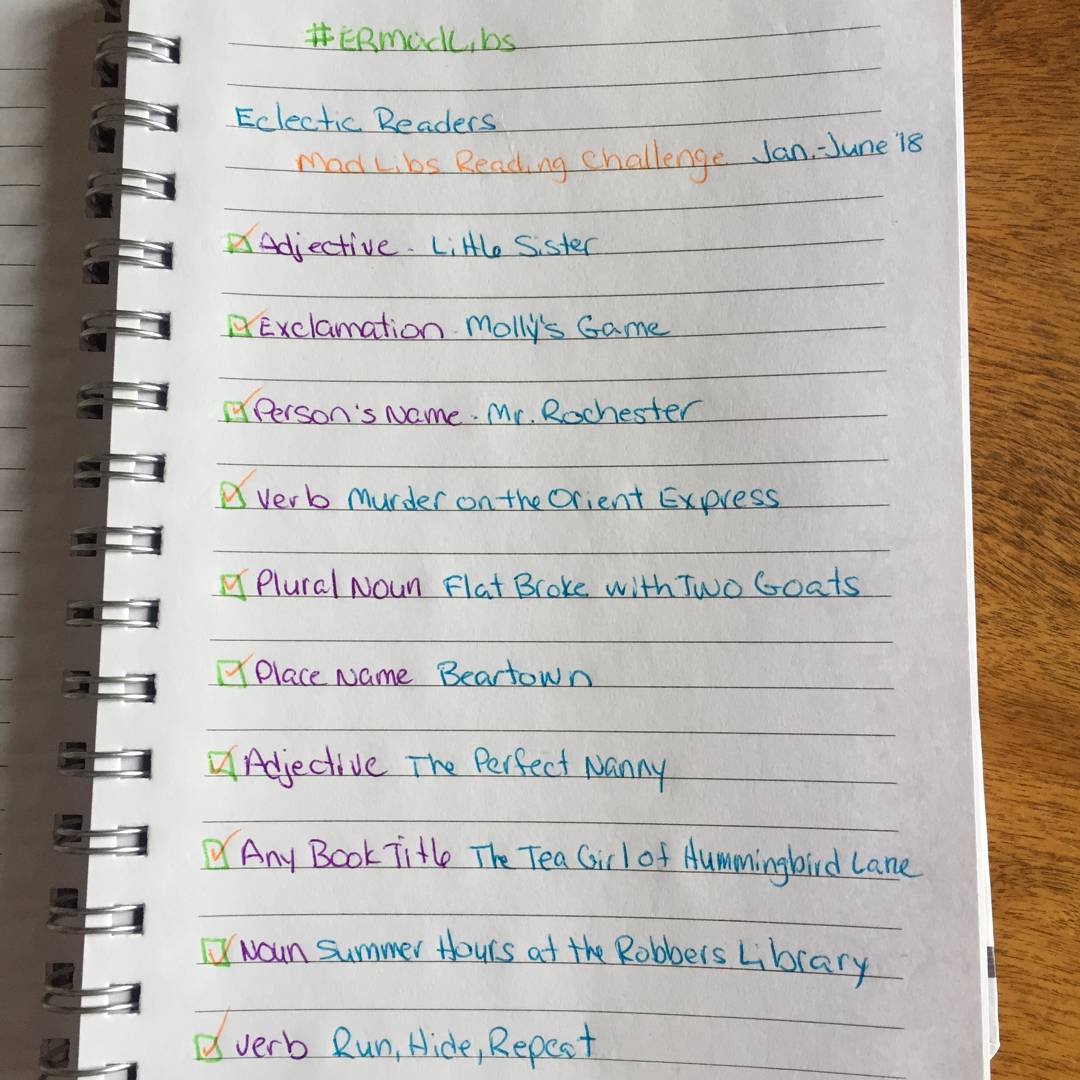 #ERMadLibs
Eclectic Readers
Mad Libs Reading Challenge Jan.-June '18
Adjective - Little Sister
Exclamation - Molly's Game
Person's Name - Mr. Rochester
Verb Murder on the Orient Express
Plural Noun Flat Broke with Two Goats
Place Name Beartown
Adjective The Perfect Nanny
Any Book Title The Tea Girl of Hummingbird Lane
Noun Summer Hours at the Robbers Library
Verb Run, Hide, Repeat